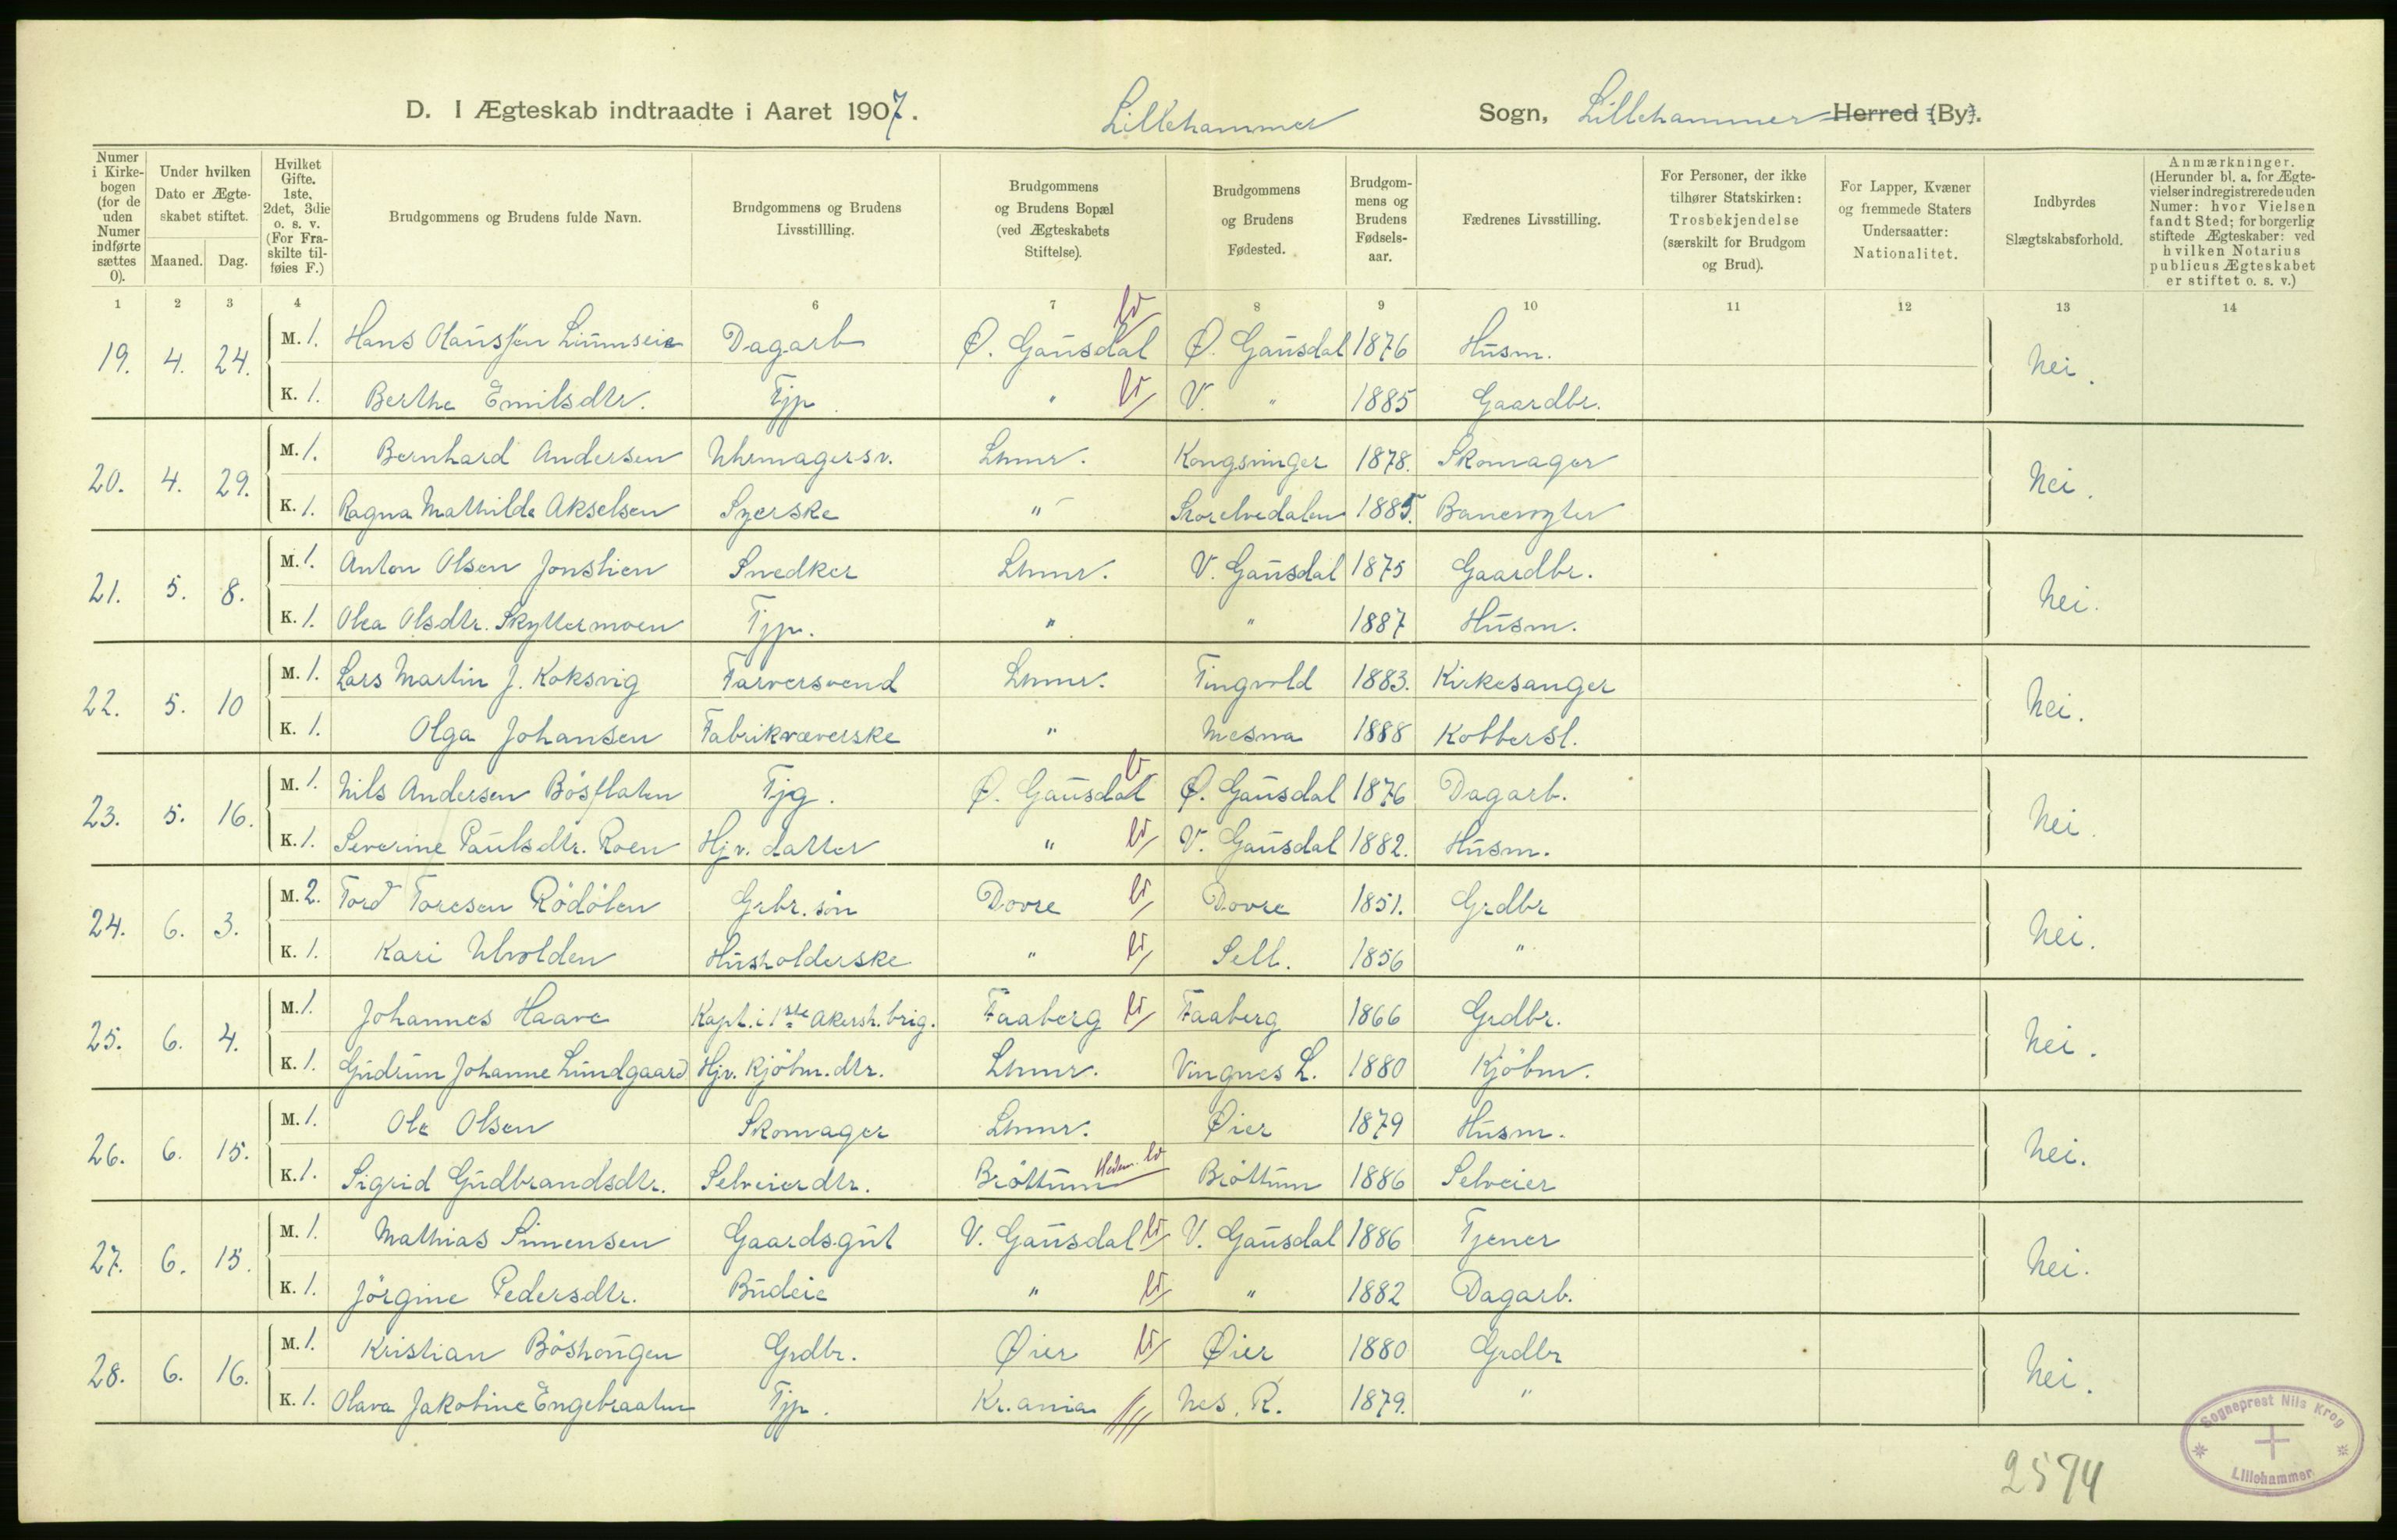 D. I Ægteskab indtraadte i Aaret 1907. Lillehammer Sogn, Lillehammer Herred (By).
Numer i Kirkebogen (for de uden Numer indførte sættes 0).
Under hvilken Dato er Ægteskabet stiftet.
Maaned. Dag.
Hvilket Gifte. 1ste, 2det, 3die o. s. v. (For Fraskilte tilføies F.)
Brudgommens og Brudens fulde Navn.
Brudgommens og Brudens Livsstillling.
Brudgommens og Brudens Bopæl (ved Ægteskabets Stiftelse).
Brudgommens og Brudens Fødested.
Brudgommens og Brudens Fødselsaar.
Fædrenes Livsstilling.
For Personer, der ikke tilhører Statskirken: Trosbekjendelse (særskilt for Brudgom og Brud).
For Lapper, Kvæner og fremmede Staters Undersaatter: Nationalitet.
Indbyrdes Slægtskabsforhold.
Anmærkninger. (Herunder bl. a. for Ægtevielser indregistrerede uden Numer: hvor Vielsen fandt Sted; for borgerlig stiftede Ægteskaber: ved hvilken Notarius publicus Ægteskabet er stiftet o. s. v.)
1 2 3 4 6 7 8 9 10 11 12 13 14
19. 4. 24. M. 1. Hans Olaussen Dagarb Ø. Gausdal Ø. Gausdal 1876 Husm. Nei.
K. 1. Berthe Emilsdtr. Tjp. " V. " 1885 Gaardbr.
20. 4. 29. M. 1. Bernhard Andersen Uhrmagersv. Lhmr. Kongsvinger 1878. Skomager Nei.
K. 1. Ragna Mathilde Akselsen Syerske " Storelvedalen 1885. Banevogter
21. 5. 8. M. 1. Anton Olsen Jonslien Snedker Lhmr. V. Gausdal 1875 Gaardbr. Nei.
K. 1. Olea Olsdtr. Skyttermoen Tjp. " " 1887 Husm.
22. 5. 10 M. 1. Lars Martin J. Koksvig Farversvend Lhmr. Tingvold 1883. Kirkesanger Nei.
K. 1. Olga Johansen Fabrikvæverske " Mesna 1888 Kobbersl.
23. 5. 16. M. 1. Nils Andersen Bösflaten Tjg. Ø. Gausdal Ø. Gausdal 1876 Dagarb. Nei.
K. 1. Severine Paulsdtr. Roen Hjv. datter " V. Gausdal 1882. Husm.
24. 6. 3. M. 2. Tord Toresen Rödölen Grbr. sön Dovre Dovre 1851. Grdbr Nei.
K. 1. Kari Ulvolden Husholderske " Sell. 1856 "
25. 6. 4. M. 1. Johannes Haave Kapt. i 1ste Akersh. brig. Faaberg Faaberg 1866 Grdbr. Nei.
K. 1. Gudrun Johanne Lundgaard Hjv. Kjöbm. dtr. Lhmr. Vingnes L. 1880 Kjöbm.
26. 6. 15. M. 1. Ole Olsen Skomager Lhmr. Øier 1879 Husm. Nei.
K. 1. Sigrid Gudbrandsdtr. Selveierdtr. Bröttum Hedem. Bröttum 1886 Selveier
27. 6. 15. M. 1. Mathias Simensen Gaardsgut V. Gausdal V. Gausdal 1886 Tjener Nei.
K. 1. Jörgine Pedersdtr. Budeie " " 1882 Dagarb.
28. 6. 16. M. 1. Kristian Böshaugen Grdbr. Øier Øier 1880 Grdbr Nei.
K. 1. Olava Jakobine Engebraaten Tjp. Kr.ania Nes. R. 1879. "
Sogneprest Nils Krog
Lillehammer
2574